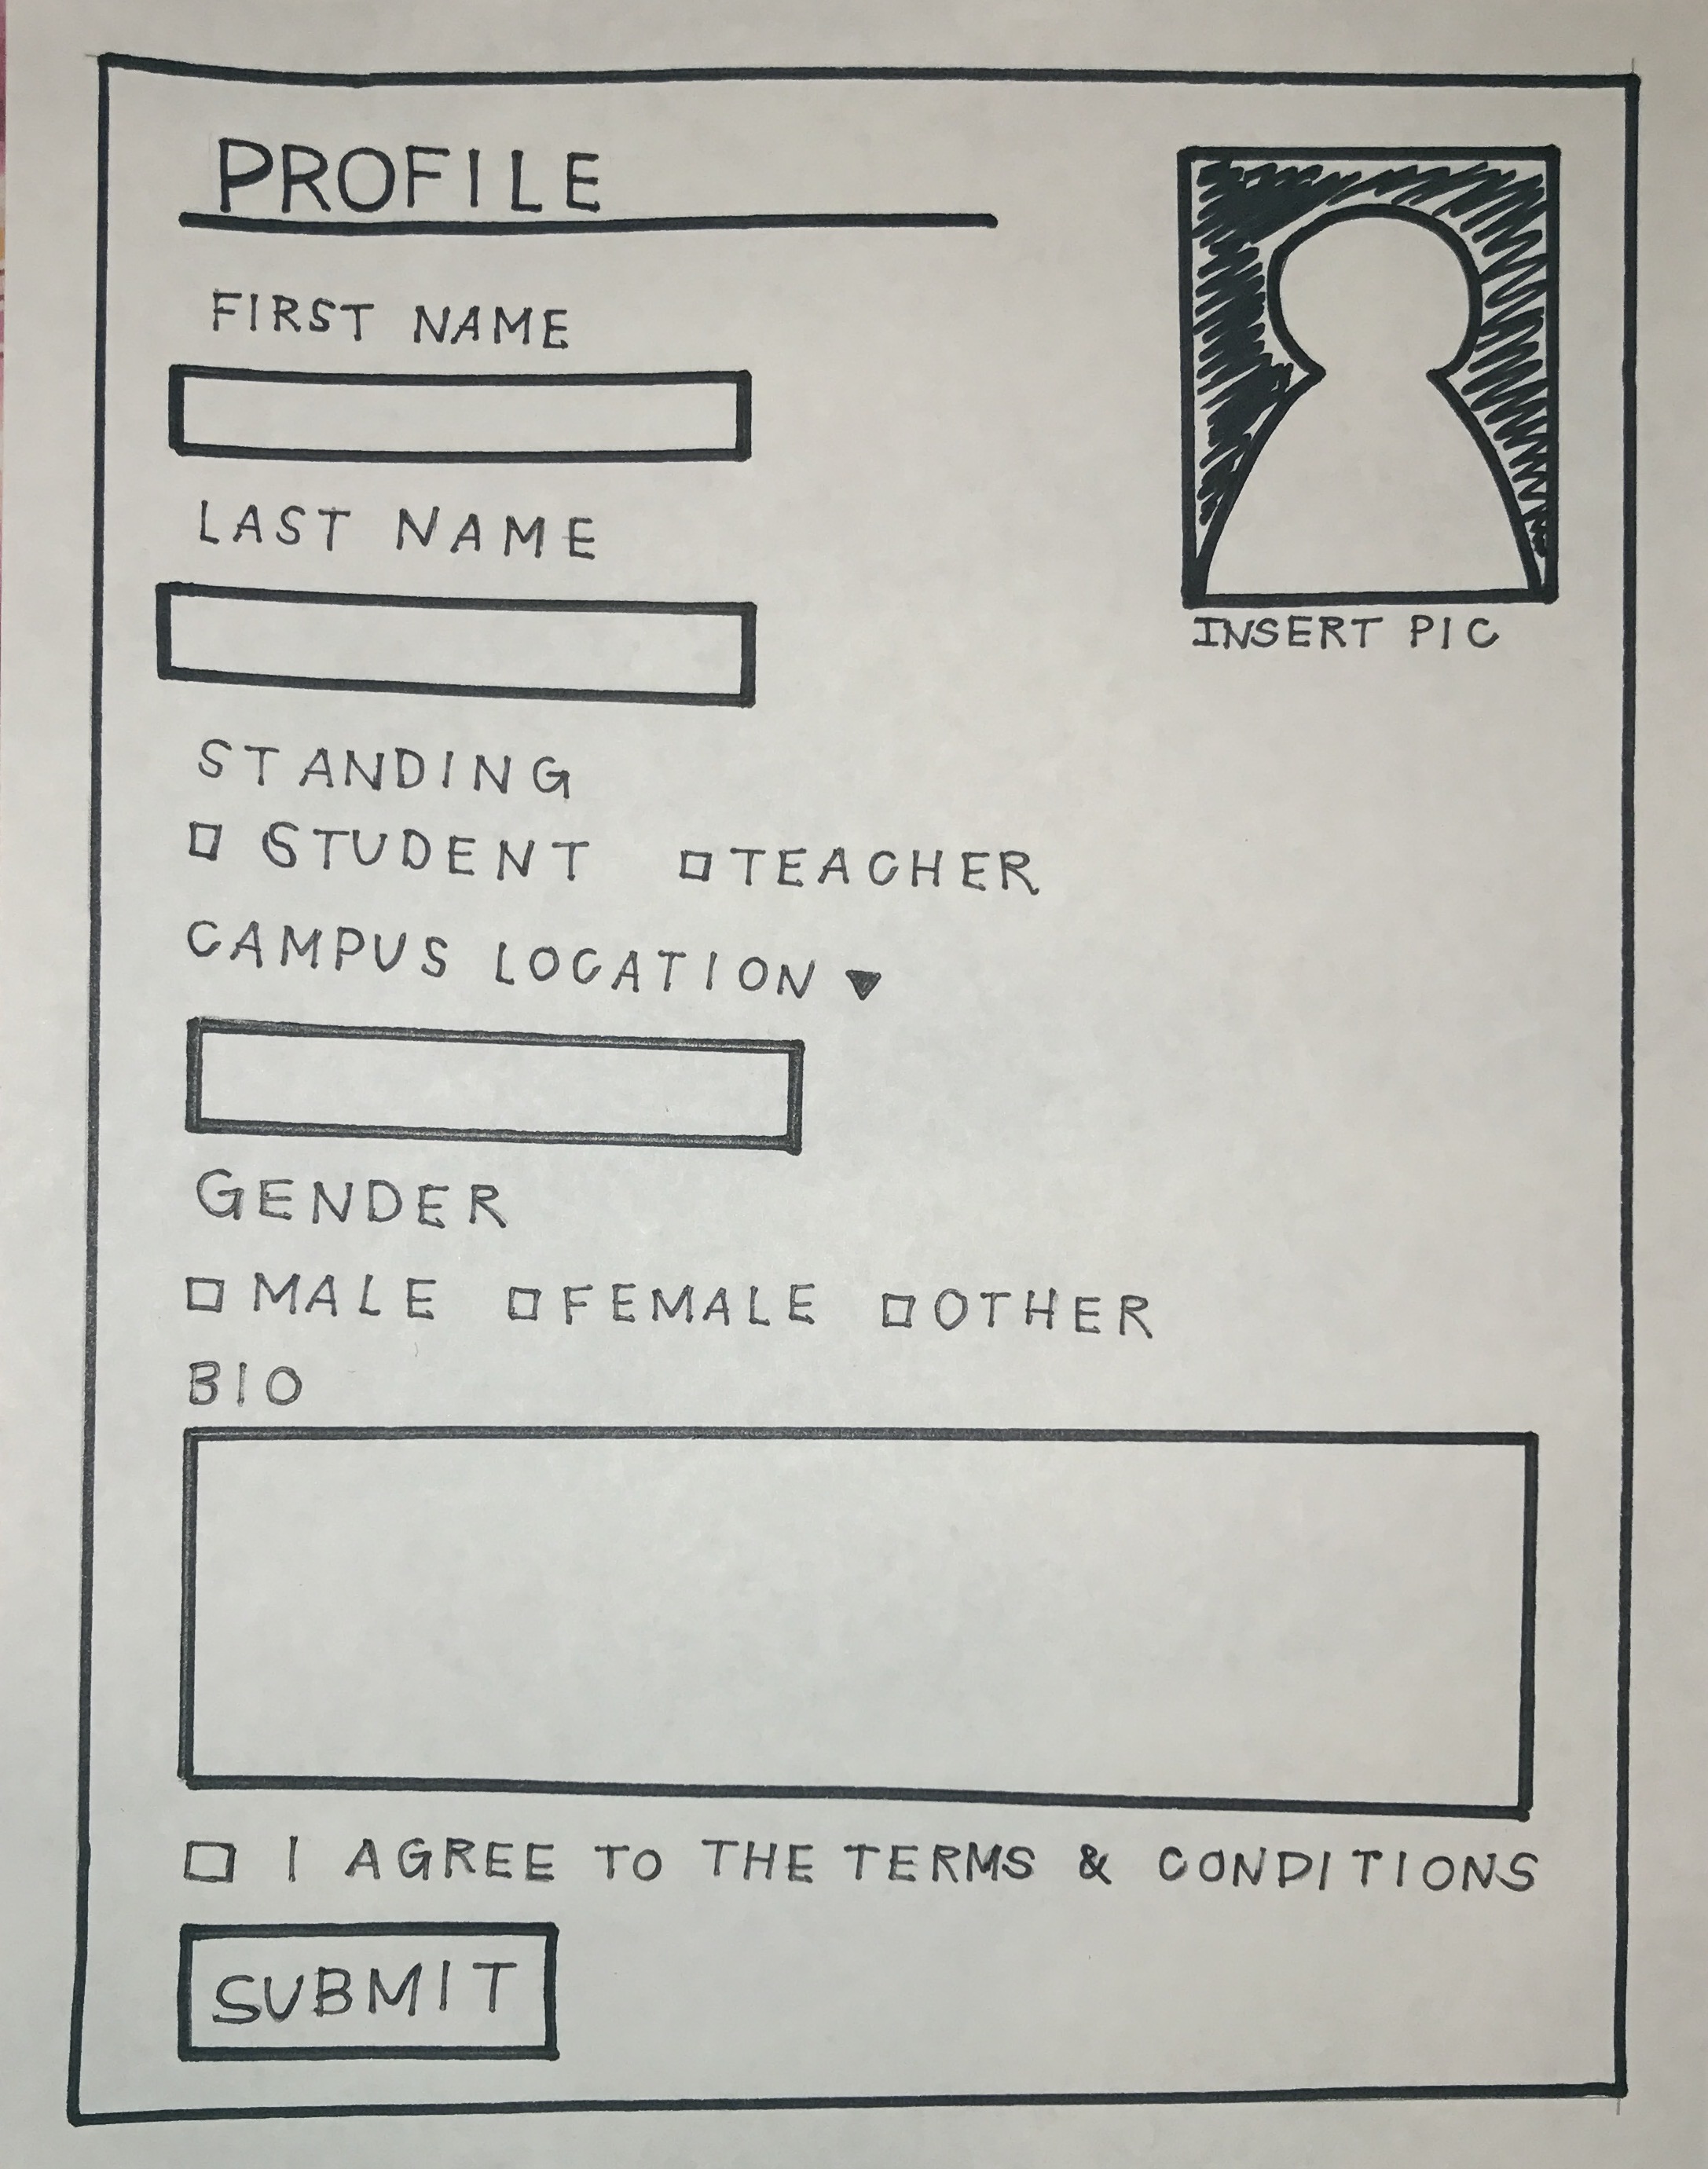 PROFILE
FIRST NAME
LAST NAME
INSERT PIC
STANDING
STUDENT TEACHER
CAMPUS LOCATION
GENDER
MALE FEMALE OTHER
BIO
I AGREE TO THE TERMS & CONDITIONS
SUBMIT